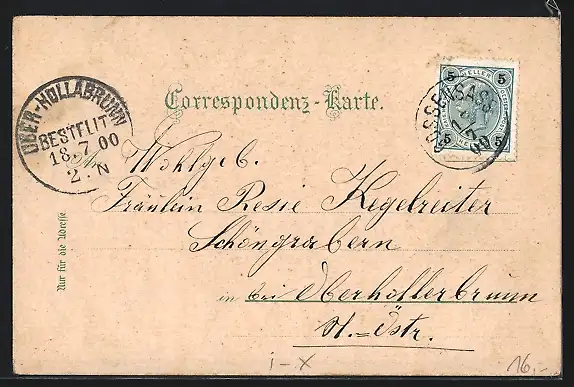 OBER-HOLLABRUNN
BESTELLT
18.7.00
2. N
Correspondenz-Karte.
5 HELLER 5
5 5
GOSSENSASS
17
00
An Wohlgeb.
Fräulein Resie Kegelreiter
Schöngrabern
in bei Oberhollerbrunn
N.-Östr.
Nur für die Adresse
i-x
16,-